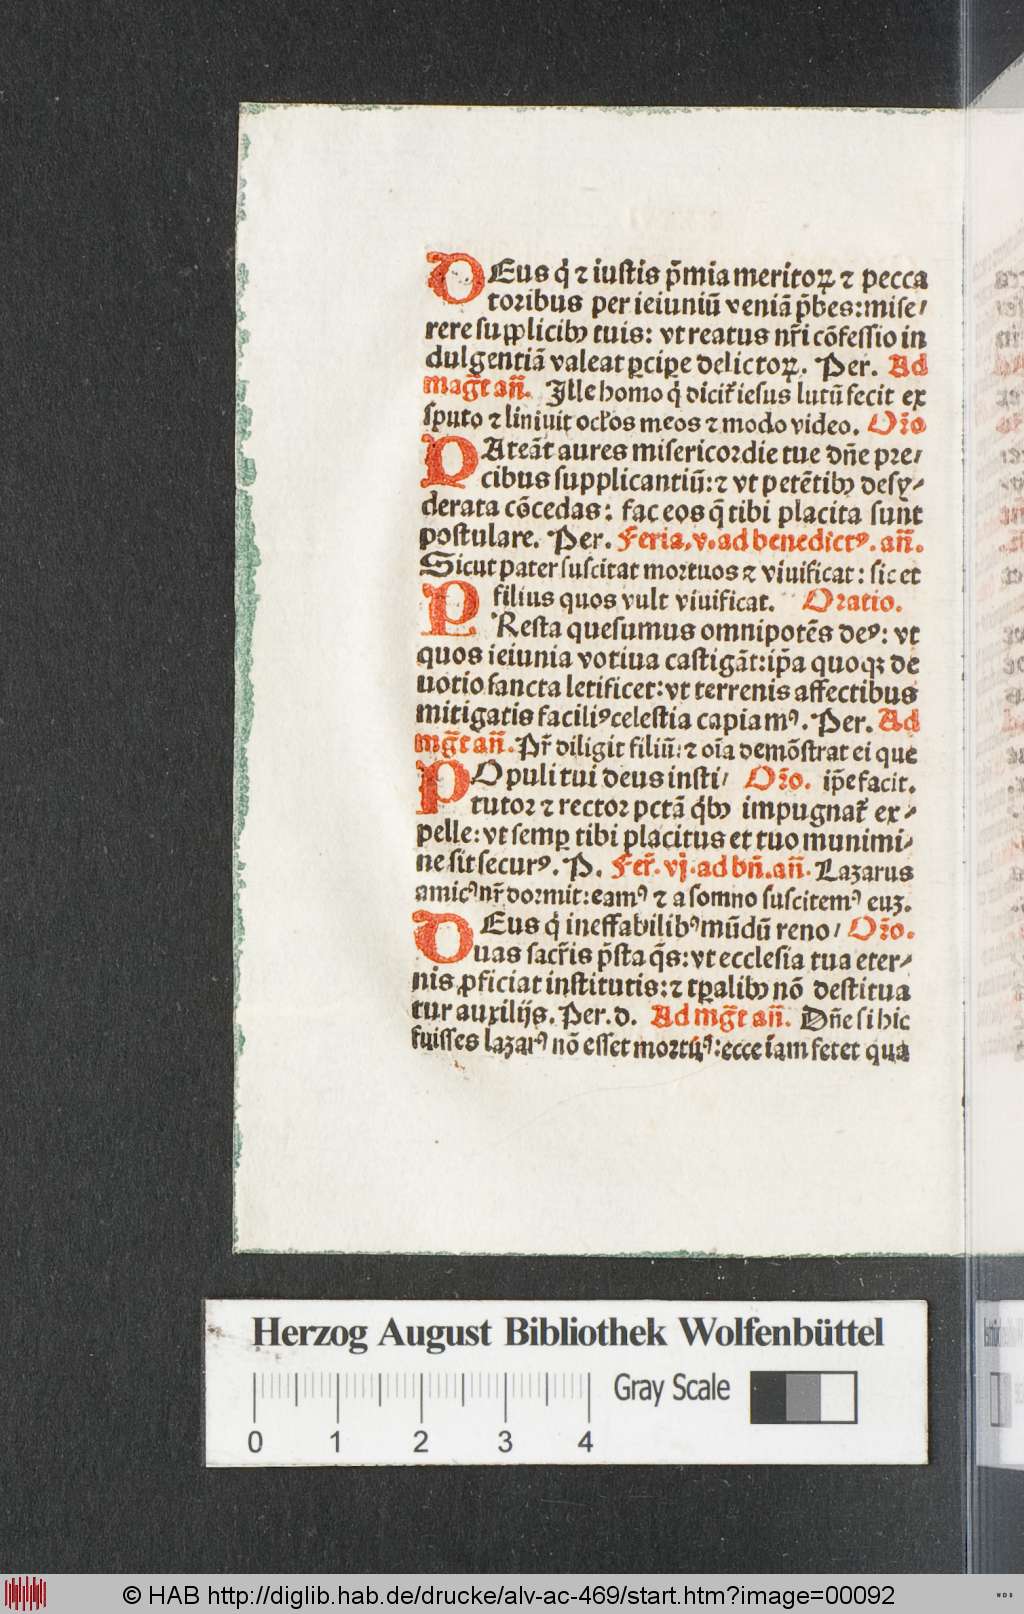 DEus q̇ ⁊ iustis p̄mia meritoꝝ ⁊ pecca
toribus per ieiuniū veniā p̄bes: mise/
rere supplicibꝫ tuis: vt reatus nr̄i cōfessio in
dulgentiā valeat ꝑciꝑe delictoꝝ. Per. Ad
mag̅t an̅. Ille homo q̇ dicit᷑ iesus lutū fecit ex
sputo ⁊ liniuit ocl̓os meos ⁊ modo video. Or̄o
PAteāt aures misericordie tue dn̄e pre/
cibus supplicantiū: ⁊ vt petētibꝫ desy/
derata cōcedas: fac eos q̄ tibi placita sunt
postulare. Per. Feria. v. ad benedictꝰ. an̅.
Sicut pater suscitat mortuos ⁊ viuificat: sic et
filius quos vult viuificat. Oratio.
PResta quesumus omnipotēs deꝰ: vt
quos ieiunia votiua castigāt: ip̄a quoqꝫ de
uotio sancta letificet: vt terrenis affectibus
mitigatis faciliꝰ celestia capiamꝰ. Per. Ad
mg̅t an̅. Pr̄ diligit filiū: ⁊ oīa demōstrat ei que
POpuli tui deus insti/ Or̄o. ip̄e facit.
tutor ⁊ rector pctā q̇bꝫ impugnat᷑ ex/
pelle: vt semꝑ tibi placitus et tuo munimi/
ne sit securꝰ. P. Fer̄. vj. ad bn̄. an̅. Lazarus
amicꝰ nr̄ dormit: eamꝰ ⁊ a somno suscitemꝰ euꝫ.
DEus q̇ ineffabilibꝰ mūdū reno/ Or̄o.
uas sacr̄is p̄sta q̄s: vt ecclesia tua eter/
nis ꝓficiat institutis: ⁊ tꝑalibꝫ nō destitua
tur auxilijs. Per. d. Ad mg̅t an̅. Dn̄e si hic
fuisses lazarꝰ nō esset mortuꝰ: ecce iam fetet qua
Herzog August Bibliothek Wolfenbüttel
Gray Scale
0 1 2 3 4
© HAB http://diglib.hab.de/drucke/alv-ac-469/start.htm?image=00092